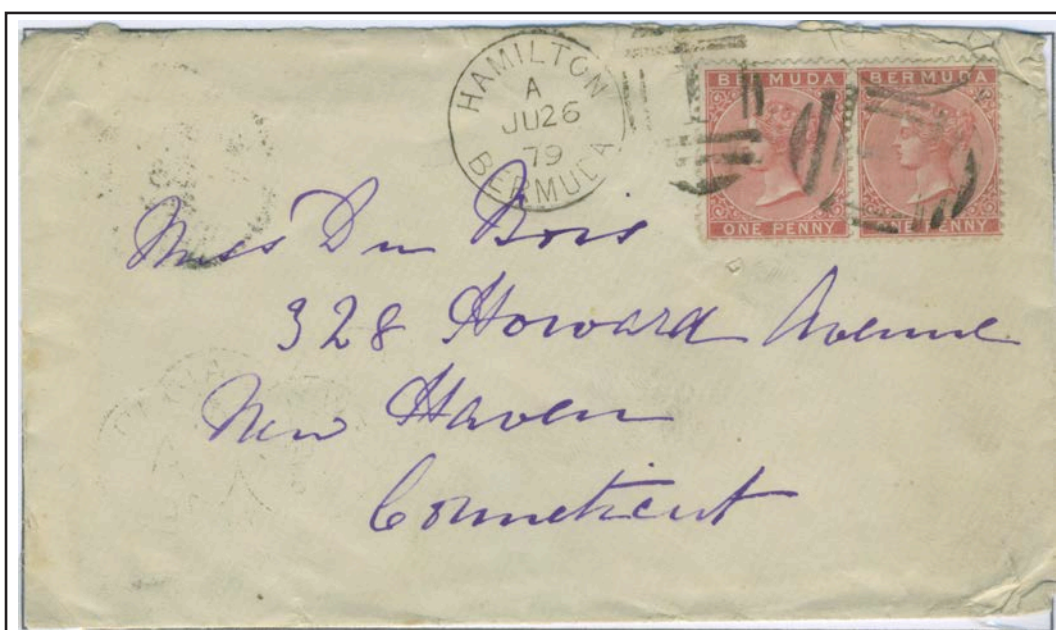 HAMILTON
A
JU26
79
BERMUDA
BERMUDA
ONE PENNY
BERMUDA
ONE PENNY
Miss Du Bois
328 Howard Avenue
New Haven
Connecticut